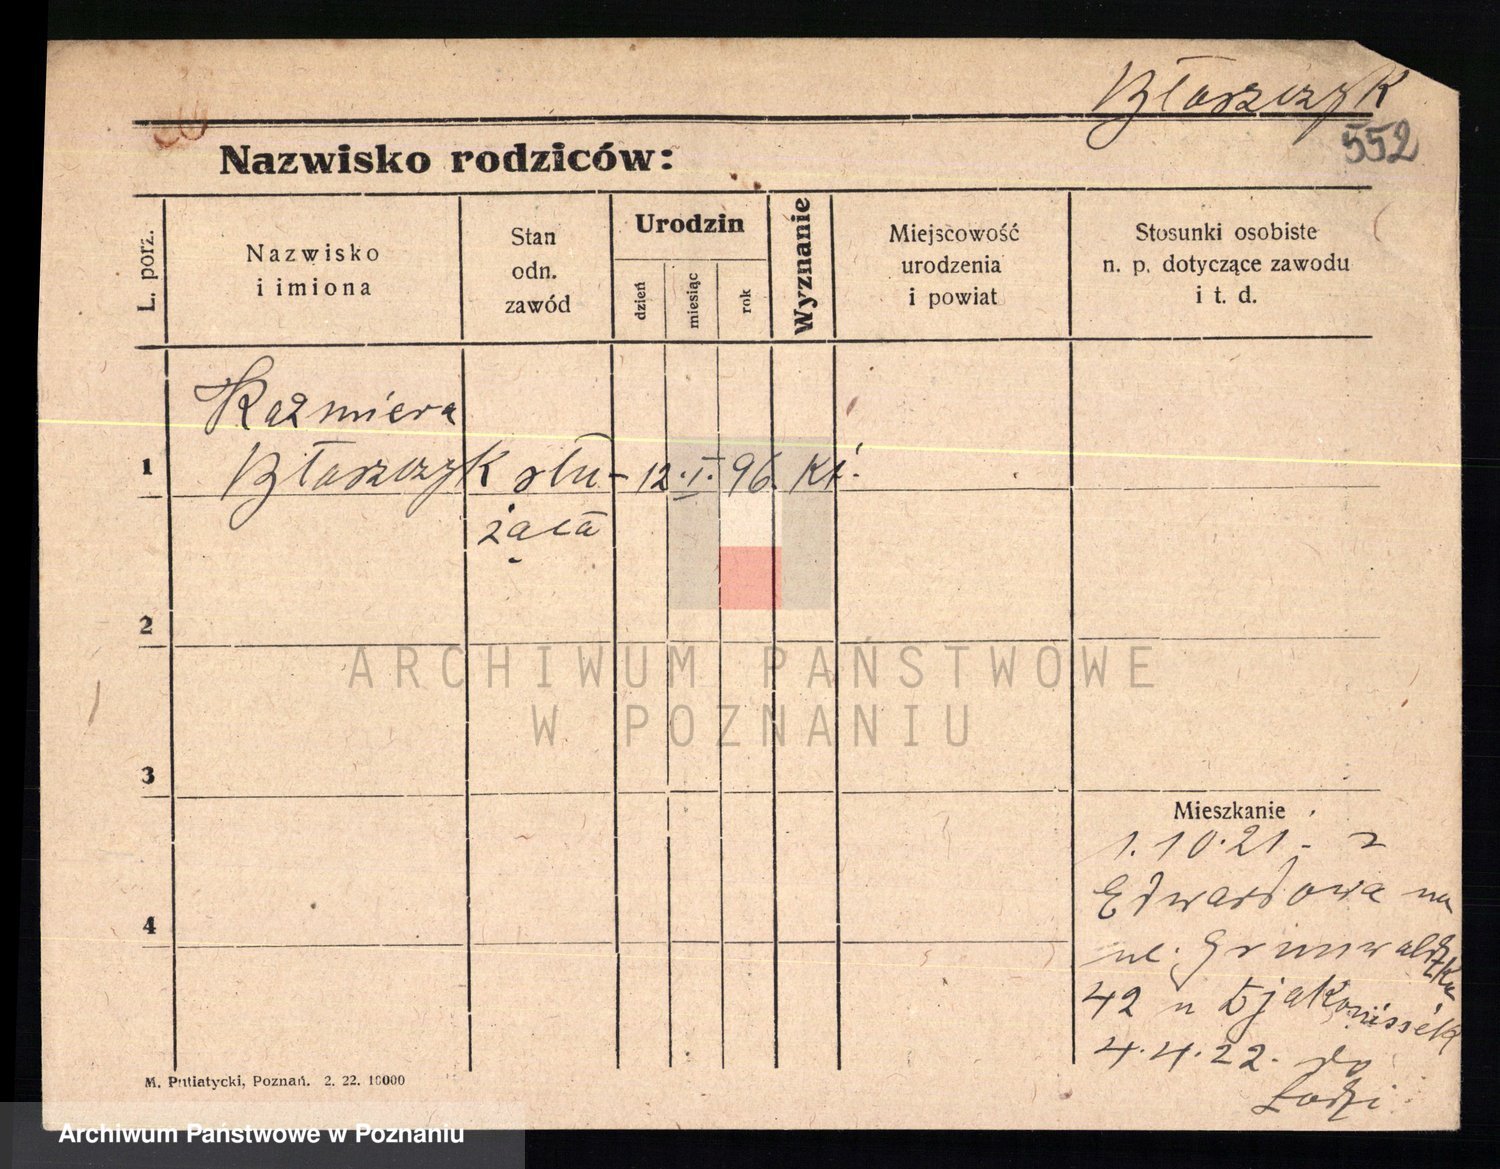 Błaszczyk
552
Nazwisko rodziców:
L. porz.
Nazwisko
i imiona
Stan
odn.
zawód
Urodzin
dzień
miesiąc
rok
Wyznanie
Miejscowość
urodzenia
i powiat
Stosunki osobiste
n. p. dotyczące zawodu
i t. d.
Kazmiera
1 Błaszczyk słu- 12.I.96. kt.
żąca
2
ARCHIWUM PAŃSTWOWE
W POZNANIU
3
Mieszkanie
1.10.21 - z
4
Edwardowa na
ul. Grunwaldzka
42 u Djakonissek
4.4.22. do
Łodzi
M. Putiatycki, Poznań. 2. 22. 10000
Archiwum Państwowe w Poznaniu